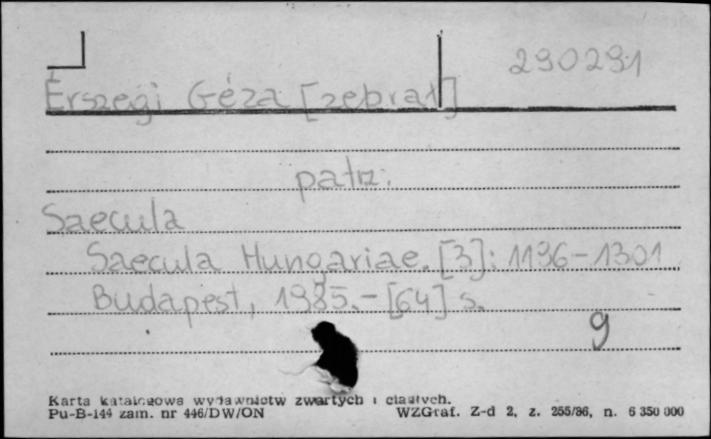 290291
Érszegi Géza [zebrał]
patrz:
Saecula
Saecula Hungariae. [3]: 1196-1301
Budapest, 1985.- [64] s.
9
Karta katalogowa wydawnictw zwartych i ciągłych.
Pu-B-144 zam. nr 446/DW/ON WZGraf. Z-d 2, z. 255/86, n. 6 350 000